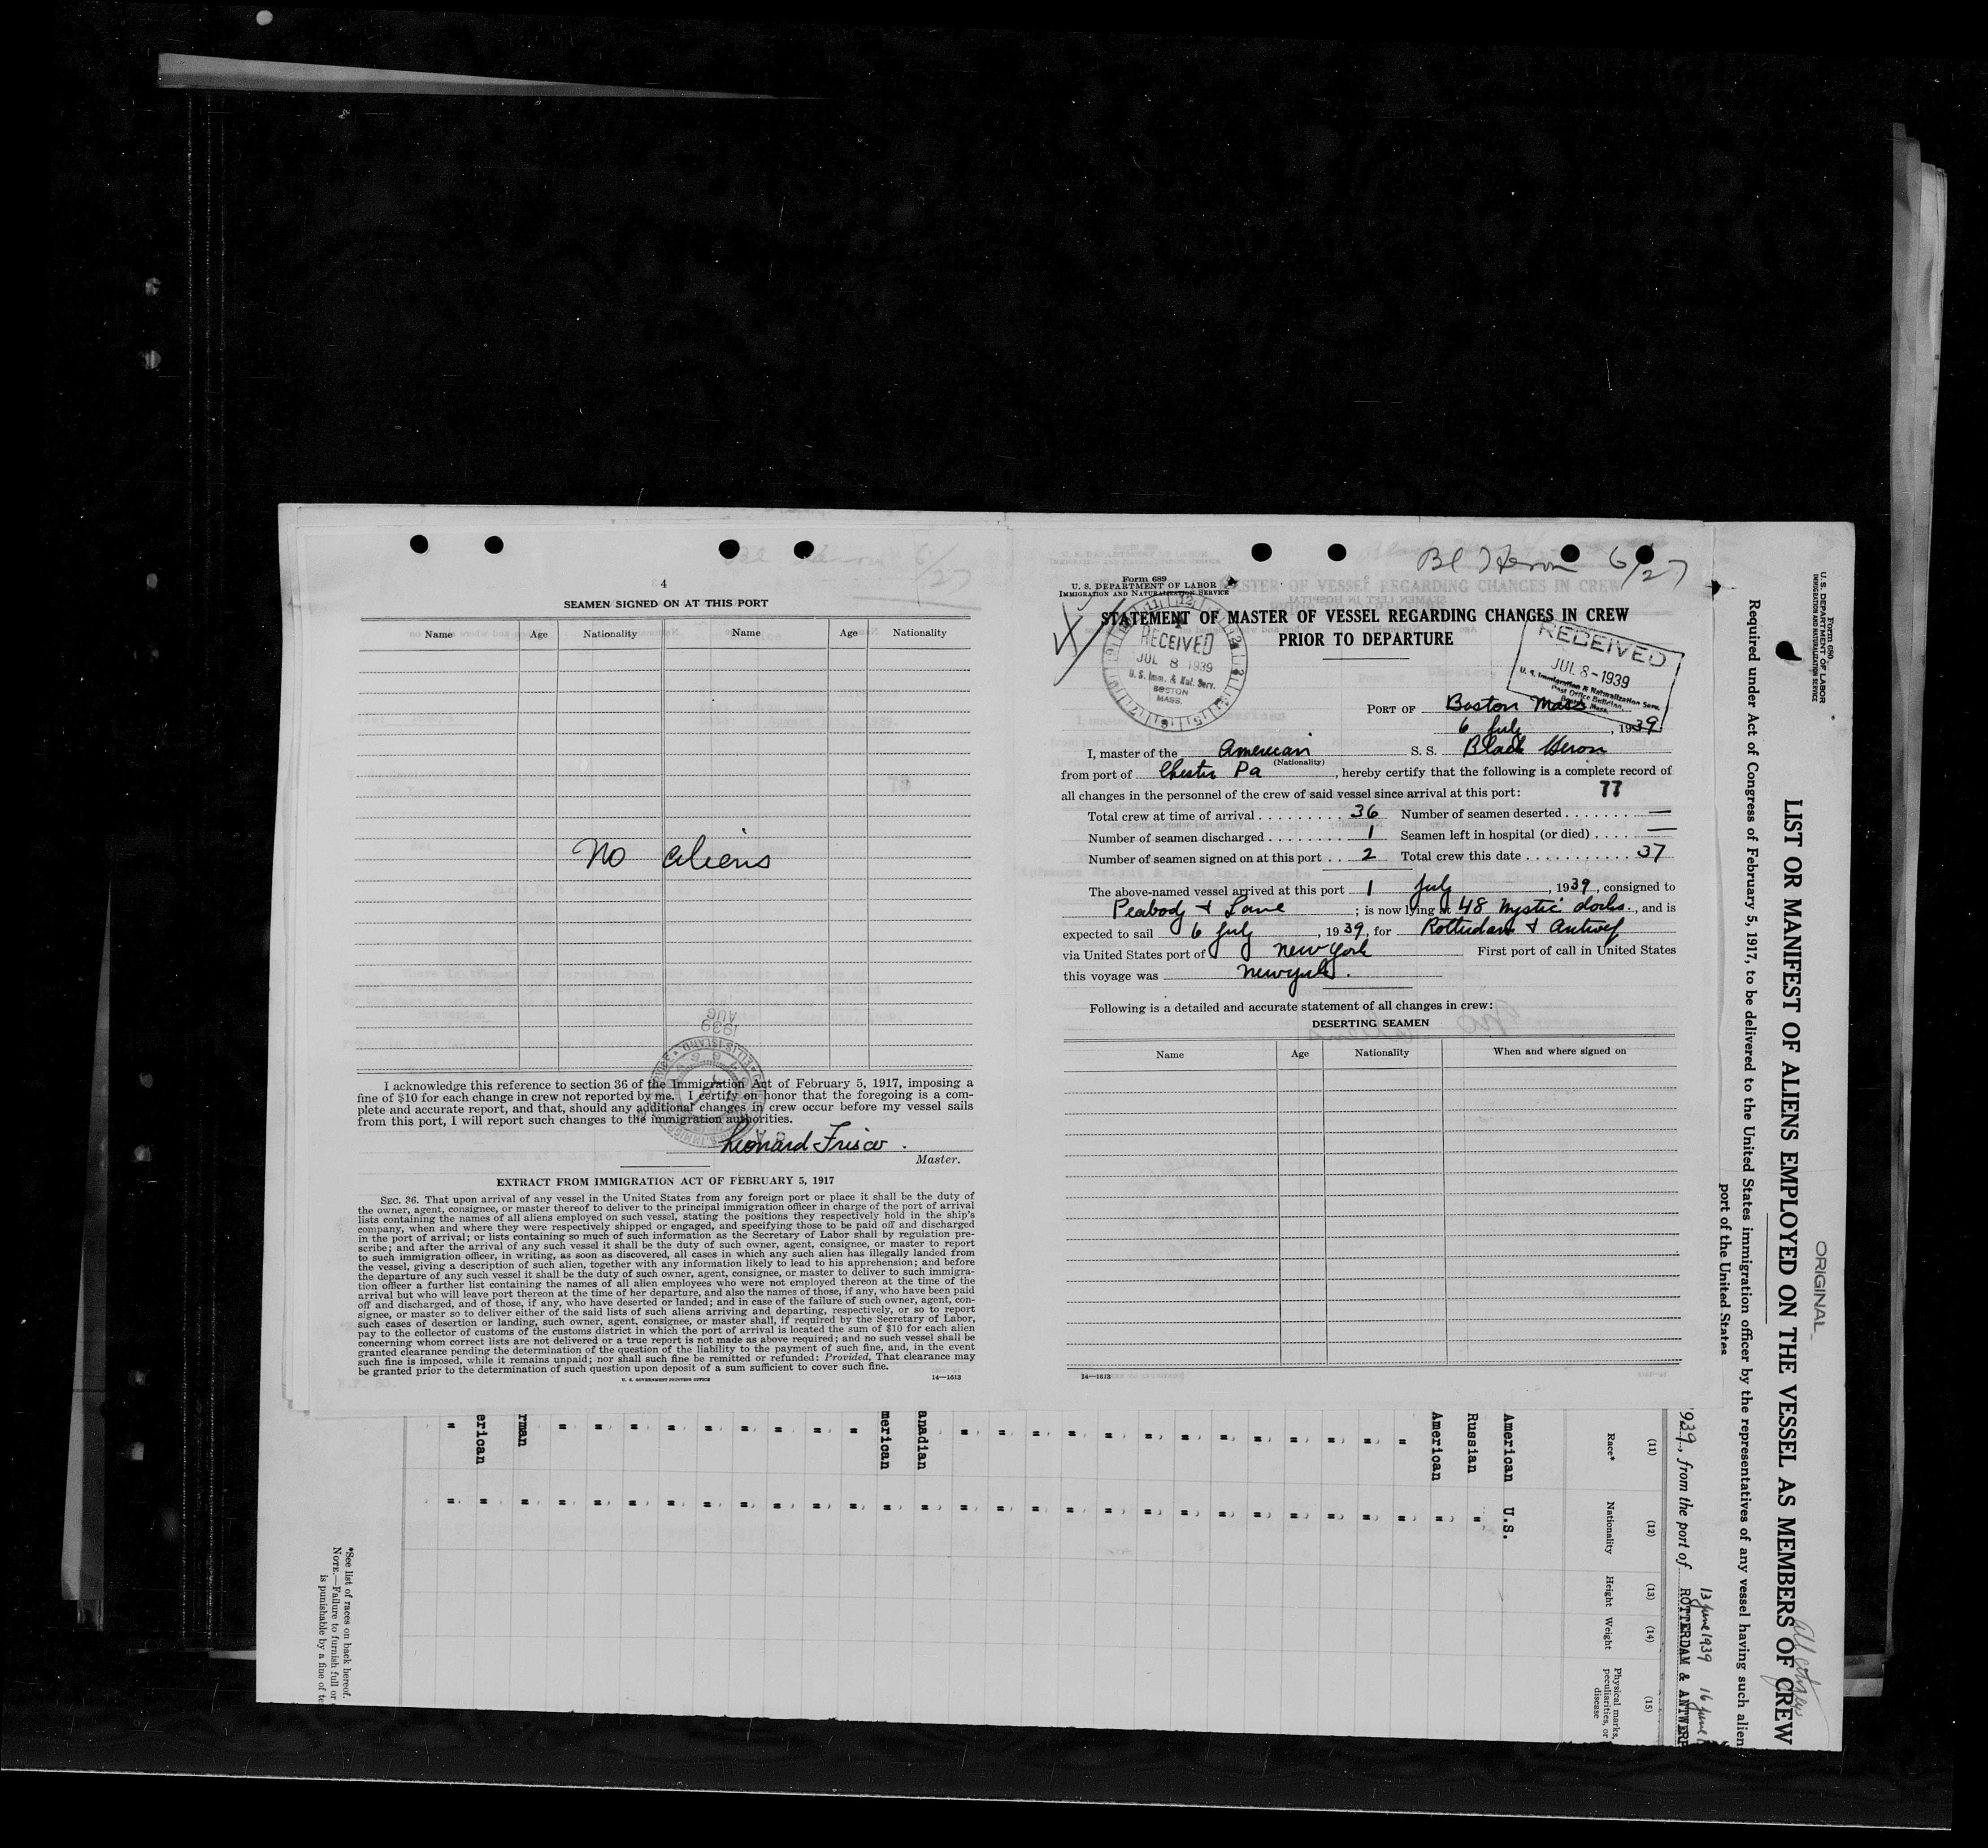 4
SEAMEN SIGNED ON AT THIS PORT
Name Age Nationality Name Age Nationality
No aliens
I acknowledge this reference to section 36 of the Immigration Act of February 5, 1917, imposing a
fine of $10 for each change in crew not reported by me. I certify on honor that the foregoing is a com-
plete and accurate report, and that, should any additional changes in crew occur before my vessel sails
from this port, I will report such changes to the immigration authorities.
Leonard Frisco.
Master.
EXTRACT FROM IMMIGRATION ACT OF FEBRUARY 5, 1917
SEC. 36. That upon arrival of any vessel in the United States from any foreign port or place it shall be the duty of
the owner, agent, consignee, or master thereof to deliver to the principal immigration officer in charge of the port of arrival
lists containing the names of all aliens employed on such vessel, stating the positions they respectively hold in the ship's
company, when and where they were respectively shipped or engaged, and specifying those to be paid off and discharged
in the port of arrival; or lists containing so much of such information as the Secretary of Labor shall by regulation pre-
scribe; and after the arrival of any such vessel it shall be the duty of such owner, agent, consignee, or master to report
to such immigration officer, in writing, as soon as discovered, all cases in which any such alien has illegally landed from
the vessel, giving a description of such alien, together with any information likely to lead to his apprehension; and before
the departure of any such vessel it shall be the duty of such owner, agent, consignee, or master to deliver to such immigra-
tion officer a further list containing the names of all alien employees who were not employed thereon at the time of the
arrival but who will leave port thereon at the time of her departure, and also the names of those, if any, who have been paid
off and discharged, and of those, if any, who have deserted or landed; and in case of the failure of such owner, agent, con-
signee, or master so to deliver either of the said lists of such aliens arriving and departing, respectively, or so to report
such cases of desertion or landing, such owner, agent, consignee, or master shall, if required by the Secretary of Labor,
pay to the collector of customs of the customs district in which the port of arrival is located the sum of $10 for each alien
concerning whom correct lists are not delivered or a true report is not made as above required; and no such vessel shall be
granted clearance pending the determination of the question of the liability to the payment of such fine, and, in the event
such fine is imposed, while it remains unpaid; nor shall such fine be remitted or refunded: Provided, That clearance may
be granted prior to the determination of such question upon deposit of a sum sufficient to cover such fine.
U. S. GOVERNMENT PRINTING OFFICE 14—1613
Bl Heron 6/27
Form 689
U. S. DEPARTMENT OF LABOR
IMMIGRATION AND NATURALIZATION SERVICE
STATEMENT OF MASTER OF VESSEL REGARDING CHANGES IN CREW
PRIOR TO DEPARTURE
RECEIVED
JUL 8 1939
U. S. Imm. & Nat. Serv.
BOSTON
MASS.
RECEIVED
JUL 8-1939
U. S. Immigration & Naturalization Serv.
Post Office Building,
Boston, Mass.
PORT OF Boston Mass
6 July, 1939
I, master of the American S. S. Black Heron
(Nationality)
from port of Chester Pa, hereby certify that the following is a complete record of
all changes in the personnel of the crew of said vessel since arrival at this port: 77
Total crew at time of arrival 36 Number of seamen deserted —
Number of seamen discharged 1 Seamen left in hospital (or died) —
Number of seamen signed on at this port 2 Total crew this date 37
The above-named vessel arrived at this port 1 July, 1939, consigned to
Peabody + Lane; is now lying at 48 Mystic docks., and is
expected to sail 6 July, 1939, for Rotterdam + Antwerp
via United States port of New York First port of call in United States
this voyage was New York.
Following is a detailed and accurate statement of all changes in crew:
DESERTING SEAMEN
Name Age Nationality When and where signed on
14—1613
Form 680
U. S. DEPARTMENT OF LABOR
IMMIGRATION AND NATURALIZATION SERVICE
ORIGINAL
LIST OR MANIFEST OF ALIENS EMPLOYED ON THE VESSEL AS MEMBERS OF CREW
Required under Act of Congress of February 5, 1917, to be delivered to the United States immigration officer by the representatives of any vessel having such alien
port of the United States
13 June 1939 16 June
939, from the port of ROTTERDAM & ANTWERP
(11) (12) (13) (14) (15)
Race* Nationality Height Weight Physical marks, peculiarities, or disease
American U.S.
Russian "
American "
" "
" "
" "
" "
" "
" "
" "
" "
" "
" "
" "
" "
" "
anadian "
merican "
" "
" "
" "
" "
" "
" "
" "
" "
" "
rman "
erican "
" "
*See list of races on back hereof.
NOTE.—Failure to furnish full or
is punishable by a fine of te